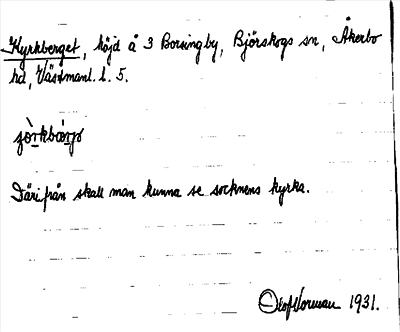 Kyrkberget, höjd å 3 Borsingby, Björskogs sn, Åkerbo
hd, Västmanl. l. 5.
Därifrån skall man kunna se socknens kyrka.
Olof Norman 1931.